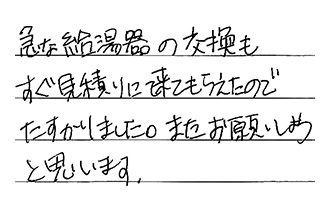 急な給湯器の交換も
すぐ見積りに来てもらえたので
たすかりました。またお願いしめ
と思います。